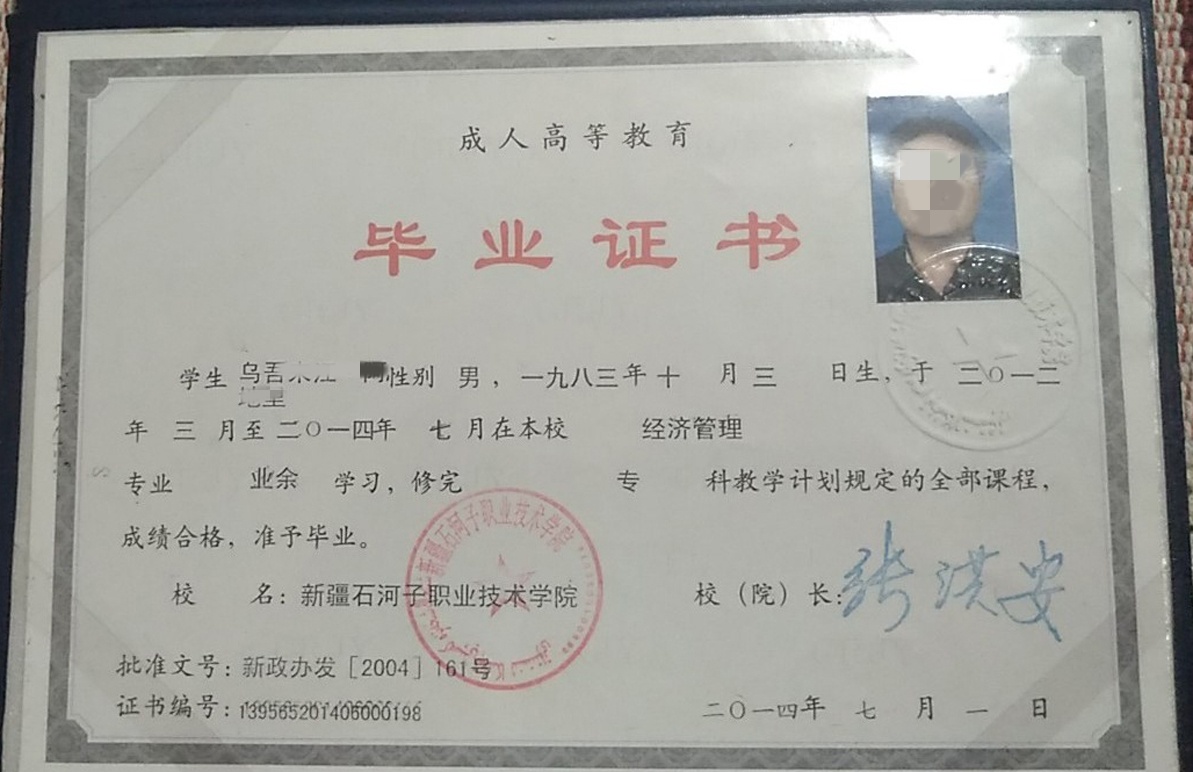 成人高等教育
毕业证书
学生 乌吾 性别 男，一九八三年十月三日生，于二〇一二
年三月至二〇一四年七月在本校 经济管理
专业 业余 学习，修完 专 科教学计划规定的全部课程，
成绩合格，准予毕业。
校 名：新疆石河子职业技术学院 校（院）长：张洪安
新疆石河子职业技术学院
批准文号：新政办发［2004］161号
证书编号：139565201406000198 二〇一四年七月一日